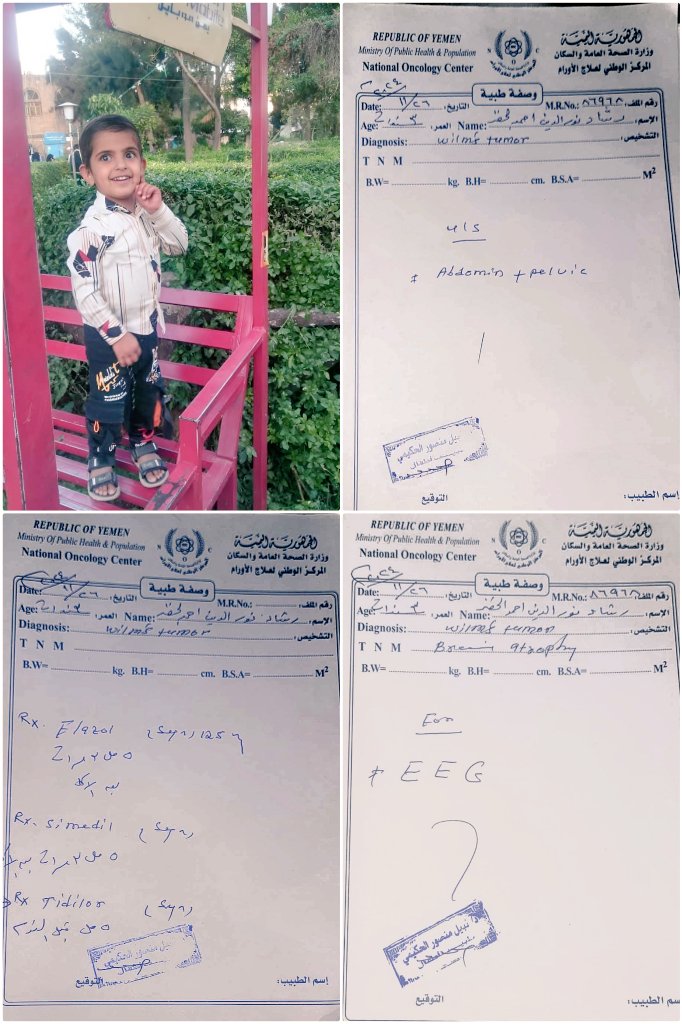 REPUBLIC OF YEMEN
Ministry Of Public Health & Population
National Oncology Center
الجمهورية اليمنية
وزارة الصحة العامة والسكان
المركز الوطني لعلاج الأورام
وصفة طبية
Date: ١١/٢٦ التاريخ: M.R.No.: ٨٦٩٦٨ رقم الملف:
Age: ٣ سنوات العمر: Name: رشاد نور الدين احمد الإسم:
Diagnosis: wilms tumor التشخيص:
T N M
B.W= kg. B.H= cm. B.S.A= M²
u/s
* Abdomin + pelvic
نبيل منصور الحكيمي
التوقيع
إسم الطبيب:
REPUBLIC OF YEMEN
Ministry Of Public Health & Population
National Oncology Center
الجمهورية اليمنية
وزارة الصحة العامة والسكان
المركز الوطني لعلاج الأورام
وصفة طبية
Date: ١١/٢٦ التاريخ: M.R.No.: رقم الملف:
Age: ٣ سنوات العمر: Name: رشاد نور الدين احمد الإسم:
Diagnosis: wilms tumor التشخيص:
T N M
B.W= kg. B.H= cm. B.S.A= M²
Rx. Flazol (syr) 125
٥ مل ٣ مرات
بعد الاكل
Rx. Simedil (syr)
٥ مل ٣ مرات
Rx Tidilor (syr)
٥ مل قبل النوم
نبيل منصور الحكيمي
التوقيع
إسم الطبيب:
REPUBLIC OF YEMEN
Ministry Of Public Health & Population
National Oncology Center
الجمهورية اليمنية
وزارة الصحة العامة والسكان
المركز الوطني لعلاج الأورام
وصفة طبية
Date: ١١/٢٦ التاريخ: M.R.No.: ٨٦٩٦٨ رقم الملف:
Age: ٣ سنوات العمر: Name: رشاد نور الدين احمد الإسم:
Diagnosis: wilms tumor التشخيص:
T N M Brain atrophy
B.W= kg. B.H= cm. B.S.A= M²
For
* EEG
د/ نبيل منصور الحكيمي
التوقيع
إسم الطبيب: